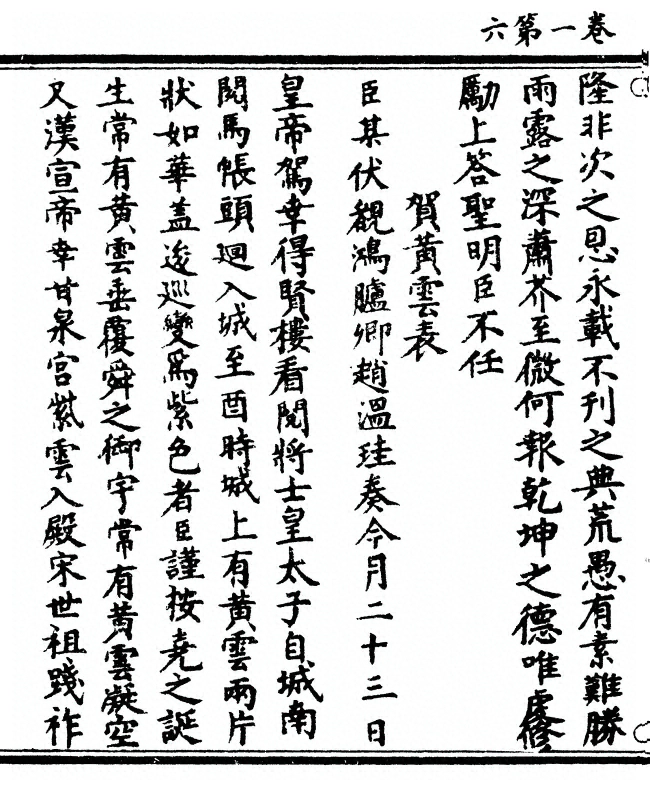 卷一第六
隆非次之恩永載不刊之典荒愚有素難勝
雨露之深蕭芥至微何報乾坤之德唯虔修
勵上答聖明臣不任
賀黃雲表
臣某伏覩鴻臚卿趙溫珪奏今月二十三日
皇帝駕幸得賢樓看閱將士皇太子自城南
閱馬帳頭迴入城至酉時城上有黃雲兩片
狀如華蓋逡巡變爲紫色者臣謹按堯之誕
生常有黃雲垂覆舜之御宇常有黃雲凝空
又漢宣帝幸甘泉宮紫雲入殿宋世祖踐祚